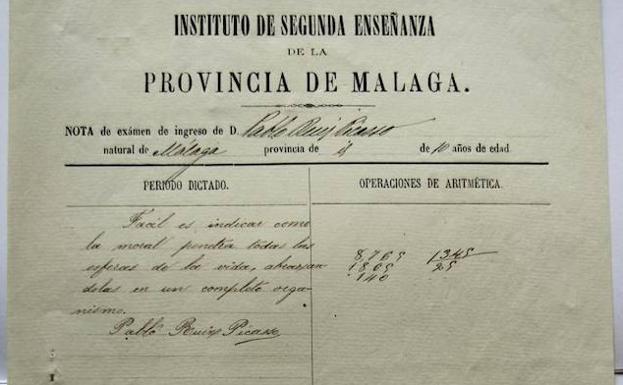 INSTITUTO DE SEGUNDA ENSEÑANZA
DE LA
PROVINCIA DE MALAGA.
NOTA de exámen de ingreso de D. Pablo Ruiz Picasso
natural de Málaga provincia de id de 10 años de edad
PERIODO DICTADO.
Facil es indicar como
la moral penetra todas las
esferas de la vida, abrazan
dolas en un completo orga-
nismo.
Pablo Ruiz Picasso
OPERACIONES DE ARITMÉTICA.
8,765 1345
1805 25
140